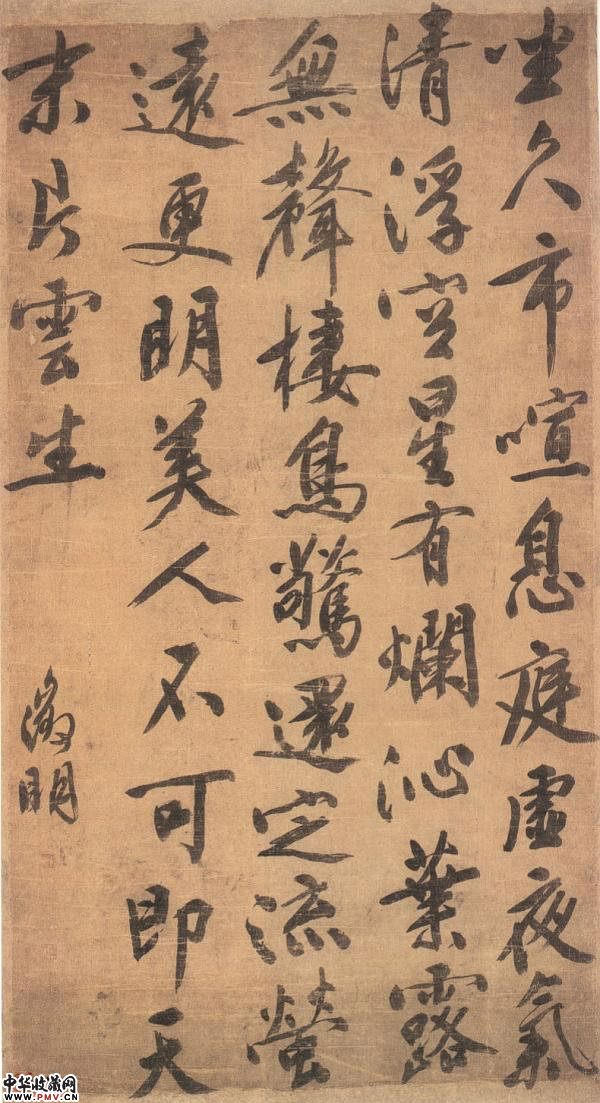 坐久市喧息庭虛夜氣
清浮空星有爛沁葉露
無聲棲鳥驚還定流螢
遠更明美人不可即天
末片雲生
徵明
中华收藏网
WWW.PMV.CN